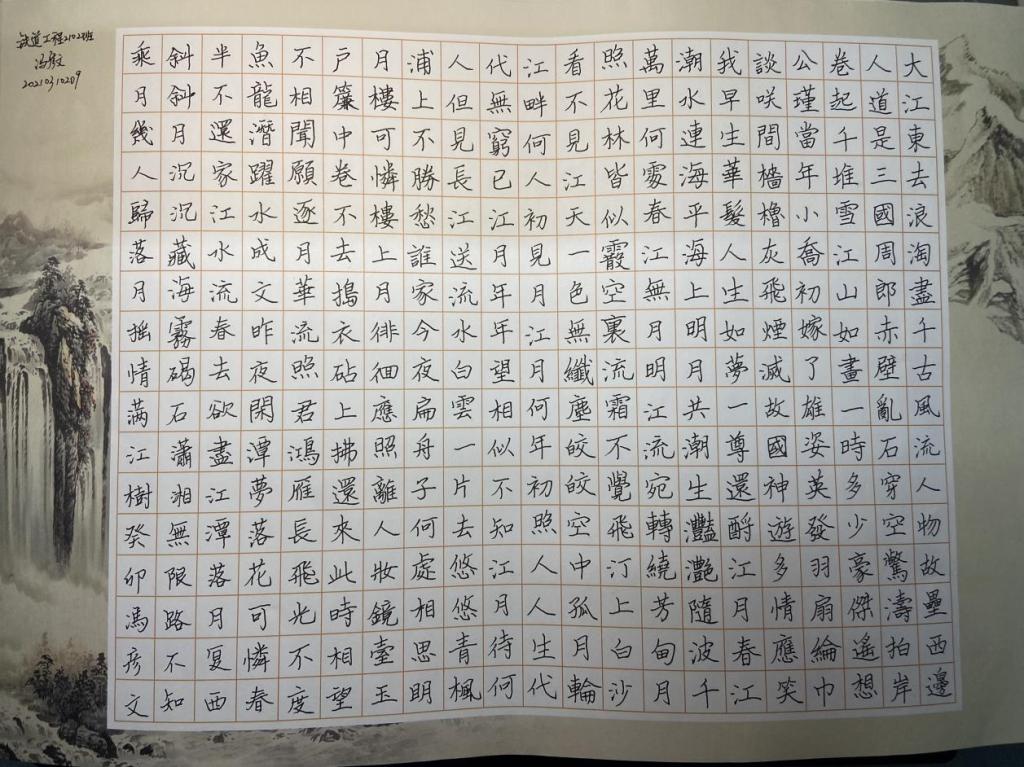 大江東去浪淘盡千古風流人物故壘西邊
人道是三國周郎赤壁亂石穿空驚濤拍岸
卷起千堆雪江山如畫一時多少豪傑遙想
公瑾當年小喬初嫁了雄姿英發羽扇綸巾
談咲間檣櫓灰飛煙滅故國神遊多情應笑
我早生華髮人生如夢一尊還酹江月春江
潮水連海平海上明月共潮生灩灔隨波千
萬里何處春江無月明江流宛轉繞芳甸月
照花林皆似霰空裏流霜不覺飛汀上白沙
看不見江天一色無纖塵皎皎空中孤月輪
江畔何人初見月江月何年初照人人生代
代無窮已江月年年望相似不知江月待何
人但見長江送流水白雲一片去悠悠青楓
浦上不勝愁誰家今夜扁舟子何處相思明
月樓可憐樓上月徘徊應照離人妝鏡臺玉
戶簾中卷不去搗衣砧上拂還來此時相望
不相聞願逐月華流照君鴻雁長飛光不度
魚龍潛躍水成文昨夜閑潭夢落花可憐春
半不還家江水流春去欲盡江潭落月复西
斜斜月沉沉藏海霧碣石瀟湘無限路不知
乘月幾人歸落月搖情满江樹癸卯馮彥文
铁道工程2102班
冯彦文
20210310209